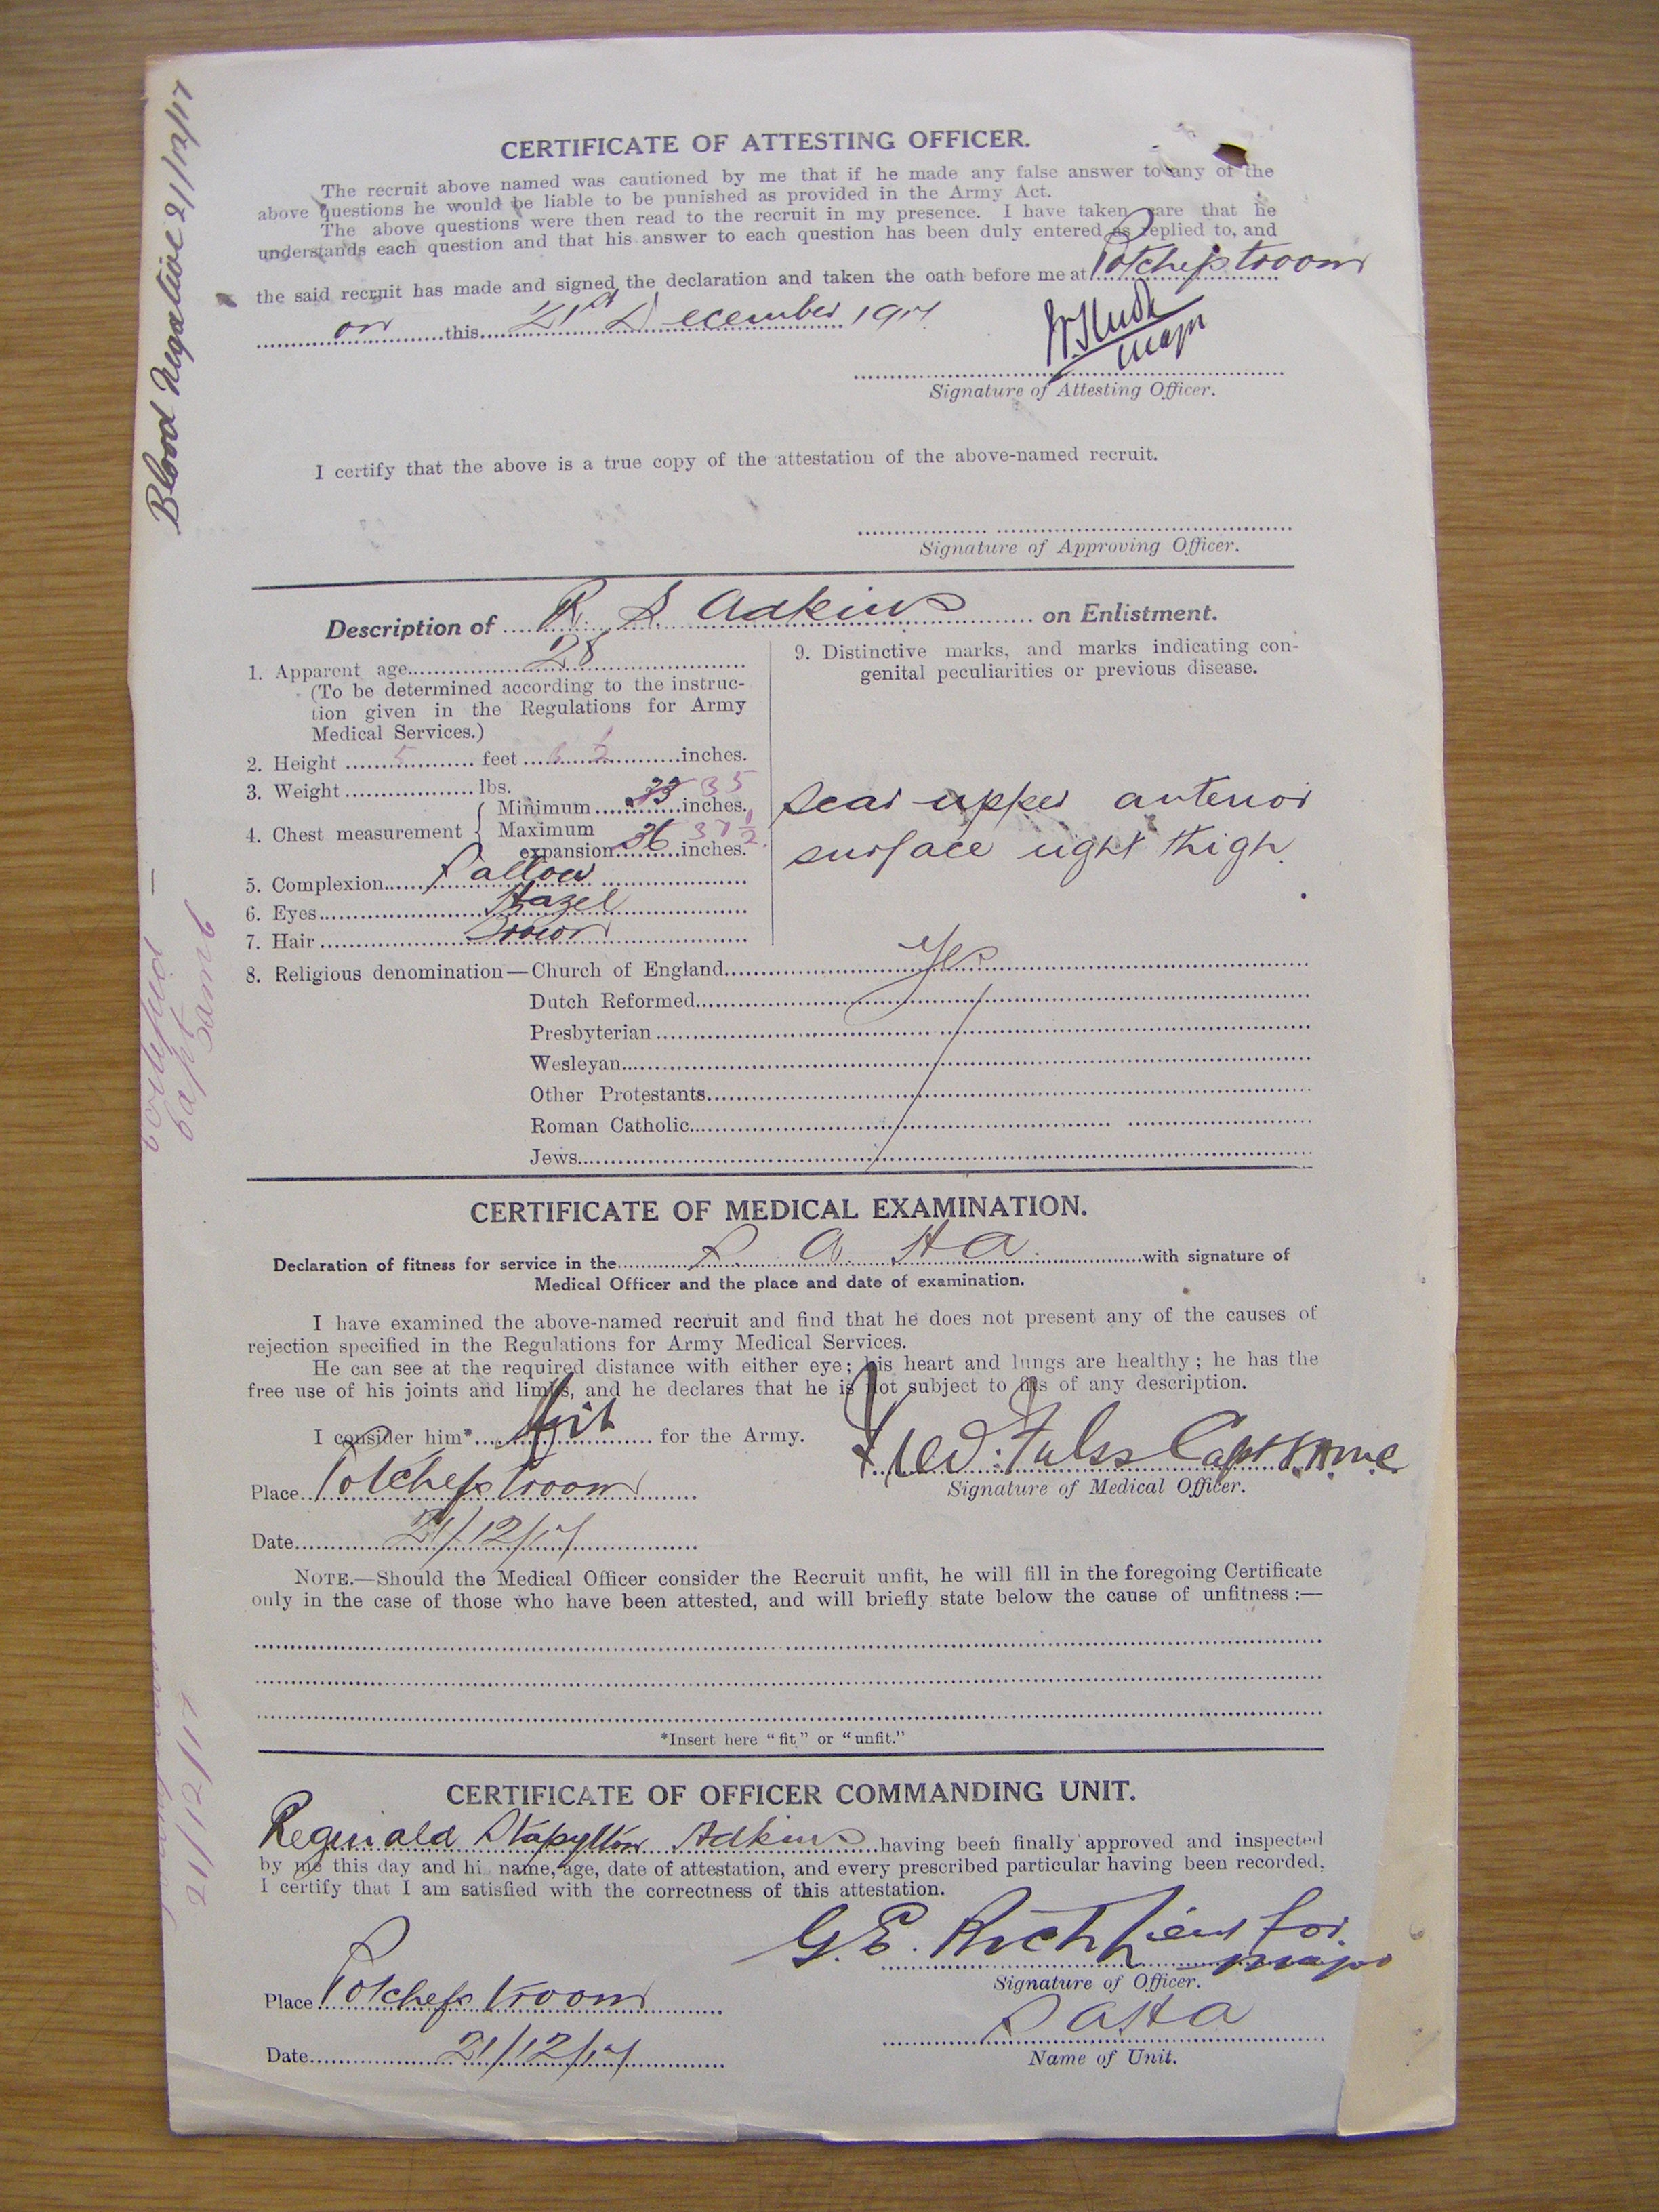 Blood Negative 21/12/17
CERTIFICATE OF ATTESTING OFFICER.
The recruit above named was cautioned by me that if he made any false answer to any of the
above questions he would be liable to be punished as provided in the Army Act.
The above questions were then read to the recruit in my presence. I have taken care that he
understands each question and that his answer to each question has been duly entered as replied to, and
the said recruit has made and signed the declaration and taken the oath before me at Potchefstroom
on this 21st December 1917
Major
Signature of Attesting Officer.
I certify that the above is a true copy of the attestation of the above-named recruit.
Signature of Approving Officer.
Description of R. S. Adkins on Enlistment.
1. Apparent age 28
(To be determined according to the instruc-
tion given in the Regulations for Army
Medical Services.)
2. Height 5 feet 6 1/2 inches.
3. Weight lbs.
4. Chest measurement { Minimum 33 35 inches.
Maximum
expansion 36 37 1/2 inches.
5. Complexion Sallow
6. Eyes Hazel
7. Hair Brown
9. Distinctive marks, and marks indicating con-
genital peculiarities or previous disease.
Scar upper anterior
surface right thigh.
8. Religious denomination—Church of England Yes
Dutch Reformed
Presbyterian
Wesleyan
Other Protestants
Roman Catholic
Jews
CERTIFICATE OF MEDICAL EXAMINATION.
Declaration of fitness for service in the S A H A with signature of
Medical Officer and the place and date of examination.
I have examined the above-named recruit and find that he does not present any of the causes of
rejection specified in the Regulations for Army Medical Services.
He can see at the required distance with either eye; his heart and lungs are healthy; he has the
free use of his joints and limbs, and he declares that he is not subject to fits of any description.
I consider him* fit for the Army.
Capt
Signature of Medical Officer.
Place Potchefstroom
Date 21/12/17
NOTE.—Should the Medical Officer consider the Recruit unfit, he will fill in the foregoing Certificate
only in the case of those who have been attested, and will briefly state below the cause of unfitness :—
*Insert here "fit" or "unfit."
CERTIFICATE OF OFFICER COMMANDING UNIT.
Reginald Stapylton Adkins having been finally approved and inspected
by me this day and hi name, age, date of attestation, and every prescribed particular having been recorded,
I certify that I am satisfied with the correctness of this attestation.
G.E. Rich Lieut for
Major
Signature of Officer.
Place Potchefstroom
S A H A
Name of Unit.
Date 21/12/17
Certified —
Capt SAMC
21/12/17